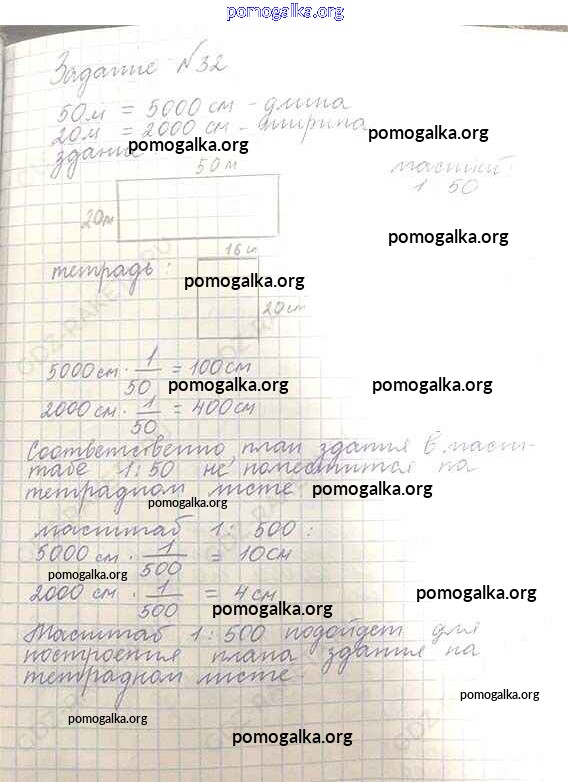 pomogalka.org
Задание №32
50м = 5000 см - длина
20м = 2000 см - ширина
pomogalka.org
здания
pomogalka.org
50 м
масштаб:
1 50
20м
pomogalka.org
16 см
тетрадь:
pomogalka.org
20см
5000см · 1/50 = 100см
pomogalka.org
pomogalka.org
2000см · 1/50 = 400см
Соответственно, план здания в масш-
табе 1:50 не поместится на
тетрадном листе
pomogalka.org
pomogalka.org
масштаб 1: 500:
5000 см · 1/500 = 10см
pomogalka.org
2000 см · 1/500 = 4 см
pomogalka.org
pomogalka.org
Масштаб 1:500 подойдет для
построения плана здания на
тетрадном листе.
pomogalka.org
pomogalka.org
pomogalka.org